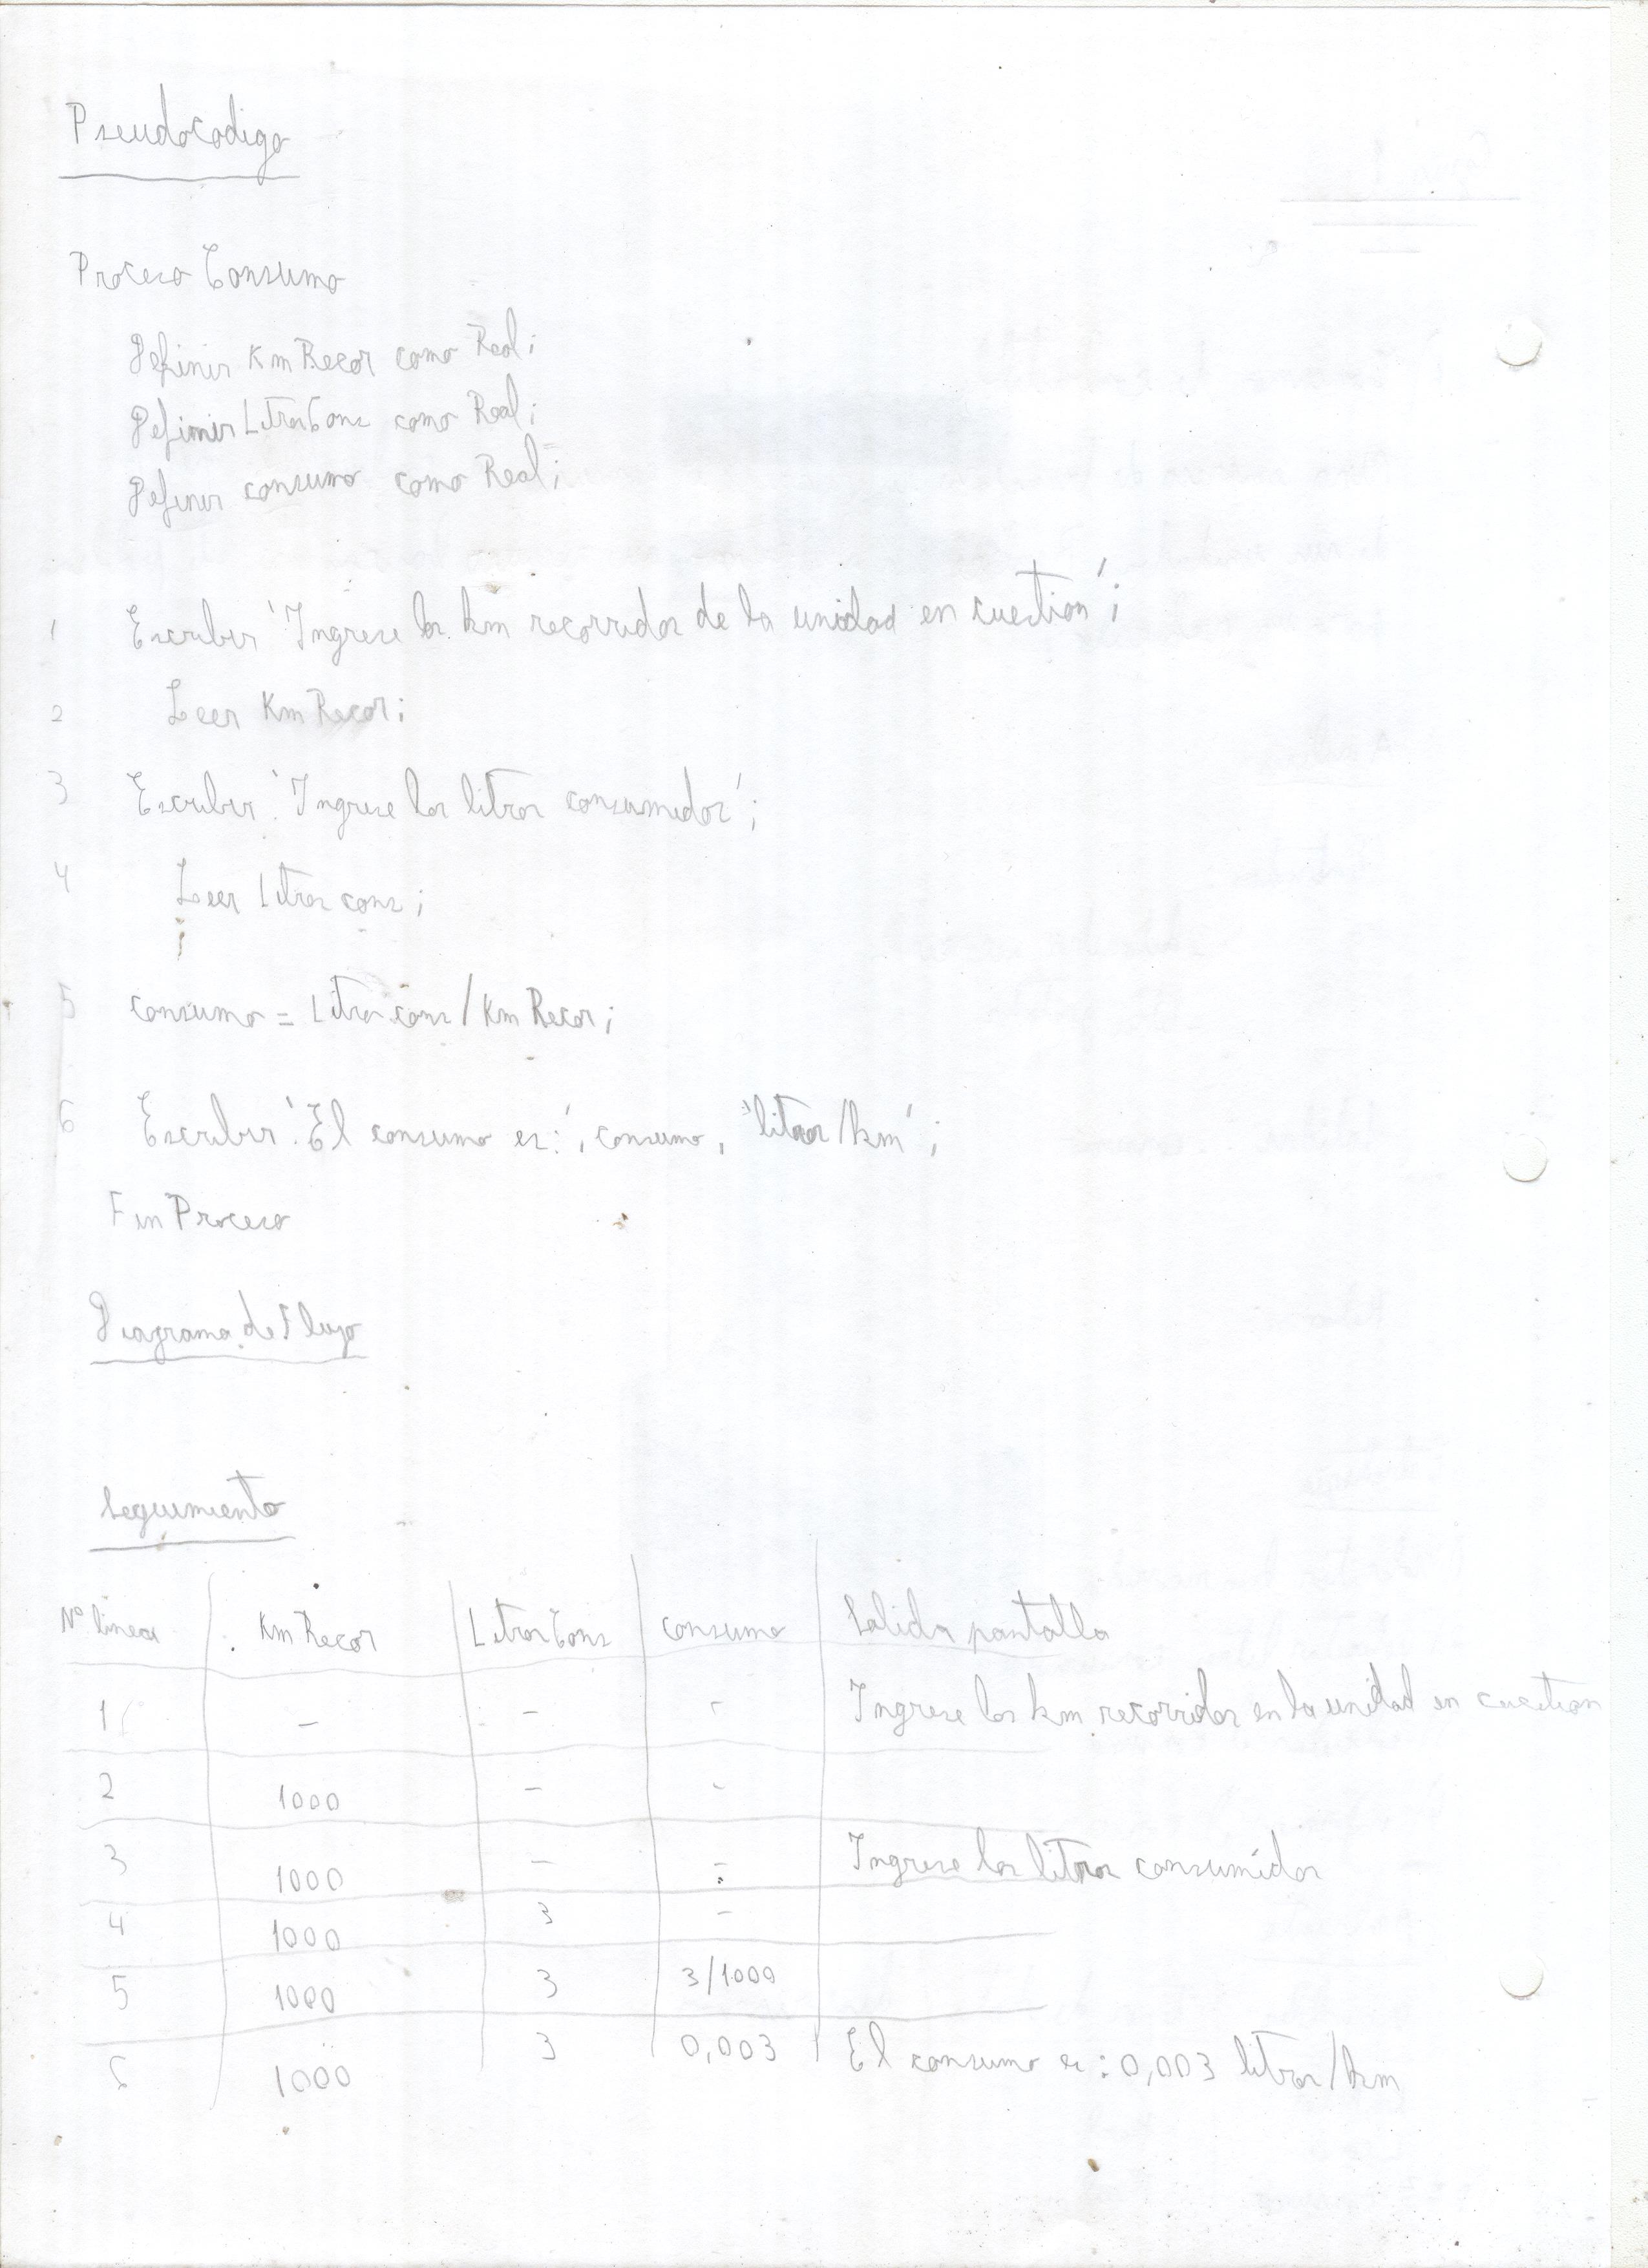 Pseudocodigo
Proceso Consumo
Definir KmRecor como Real;
Definir LitrosCons como Real;
Definir consumo como Real;
1 Escribir 'Ingrese los km recorridos de la unidad en cuestion';
2 Leer KmRecor;
3 Escribir 'Ingrese los litros consumidos';
4 Leer Litroscons;
5 consumo = Litroscons/KmRecor;
6 Escribir 'El consumo es:', consumo, 'litros/km';
FinProceso
Diagrama de Flujo
Seguimiento
Nº linea KmRecor LitrosCons consumo Salida pantalla
1 - - - Ingrese los km recorridos en la unidad en cuestion
2 1000 - -
3 1000 - - Ingrese los litros consumidos
4 1000 3 -
5 1000 3 3/1000
6 1000 3 0,003 El consumo es: 0,003 litros/km